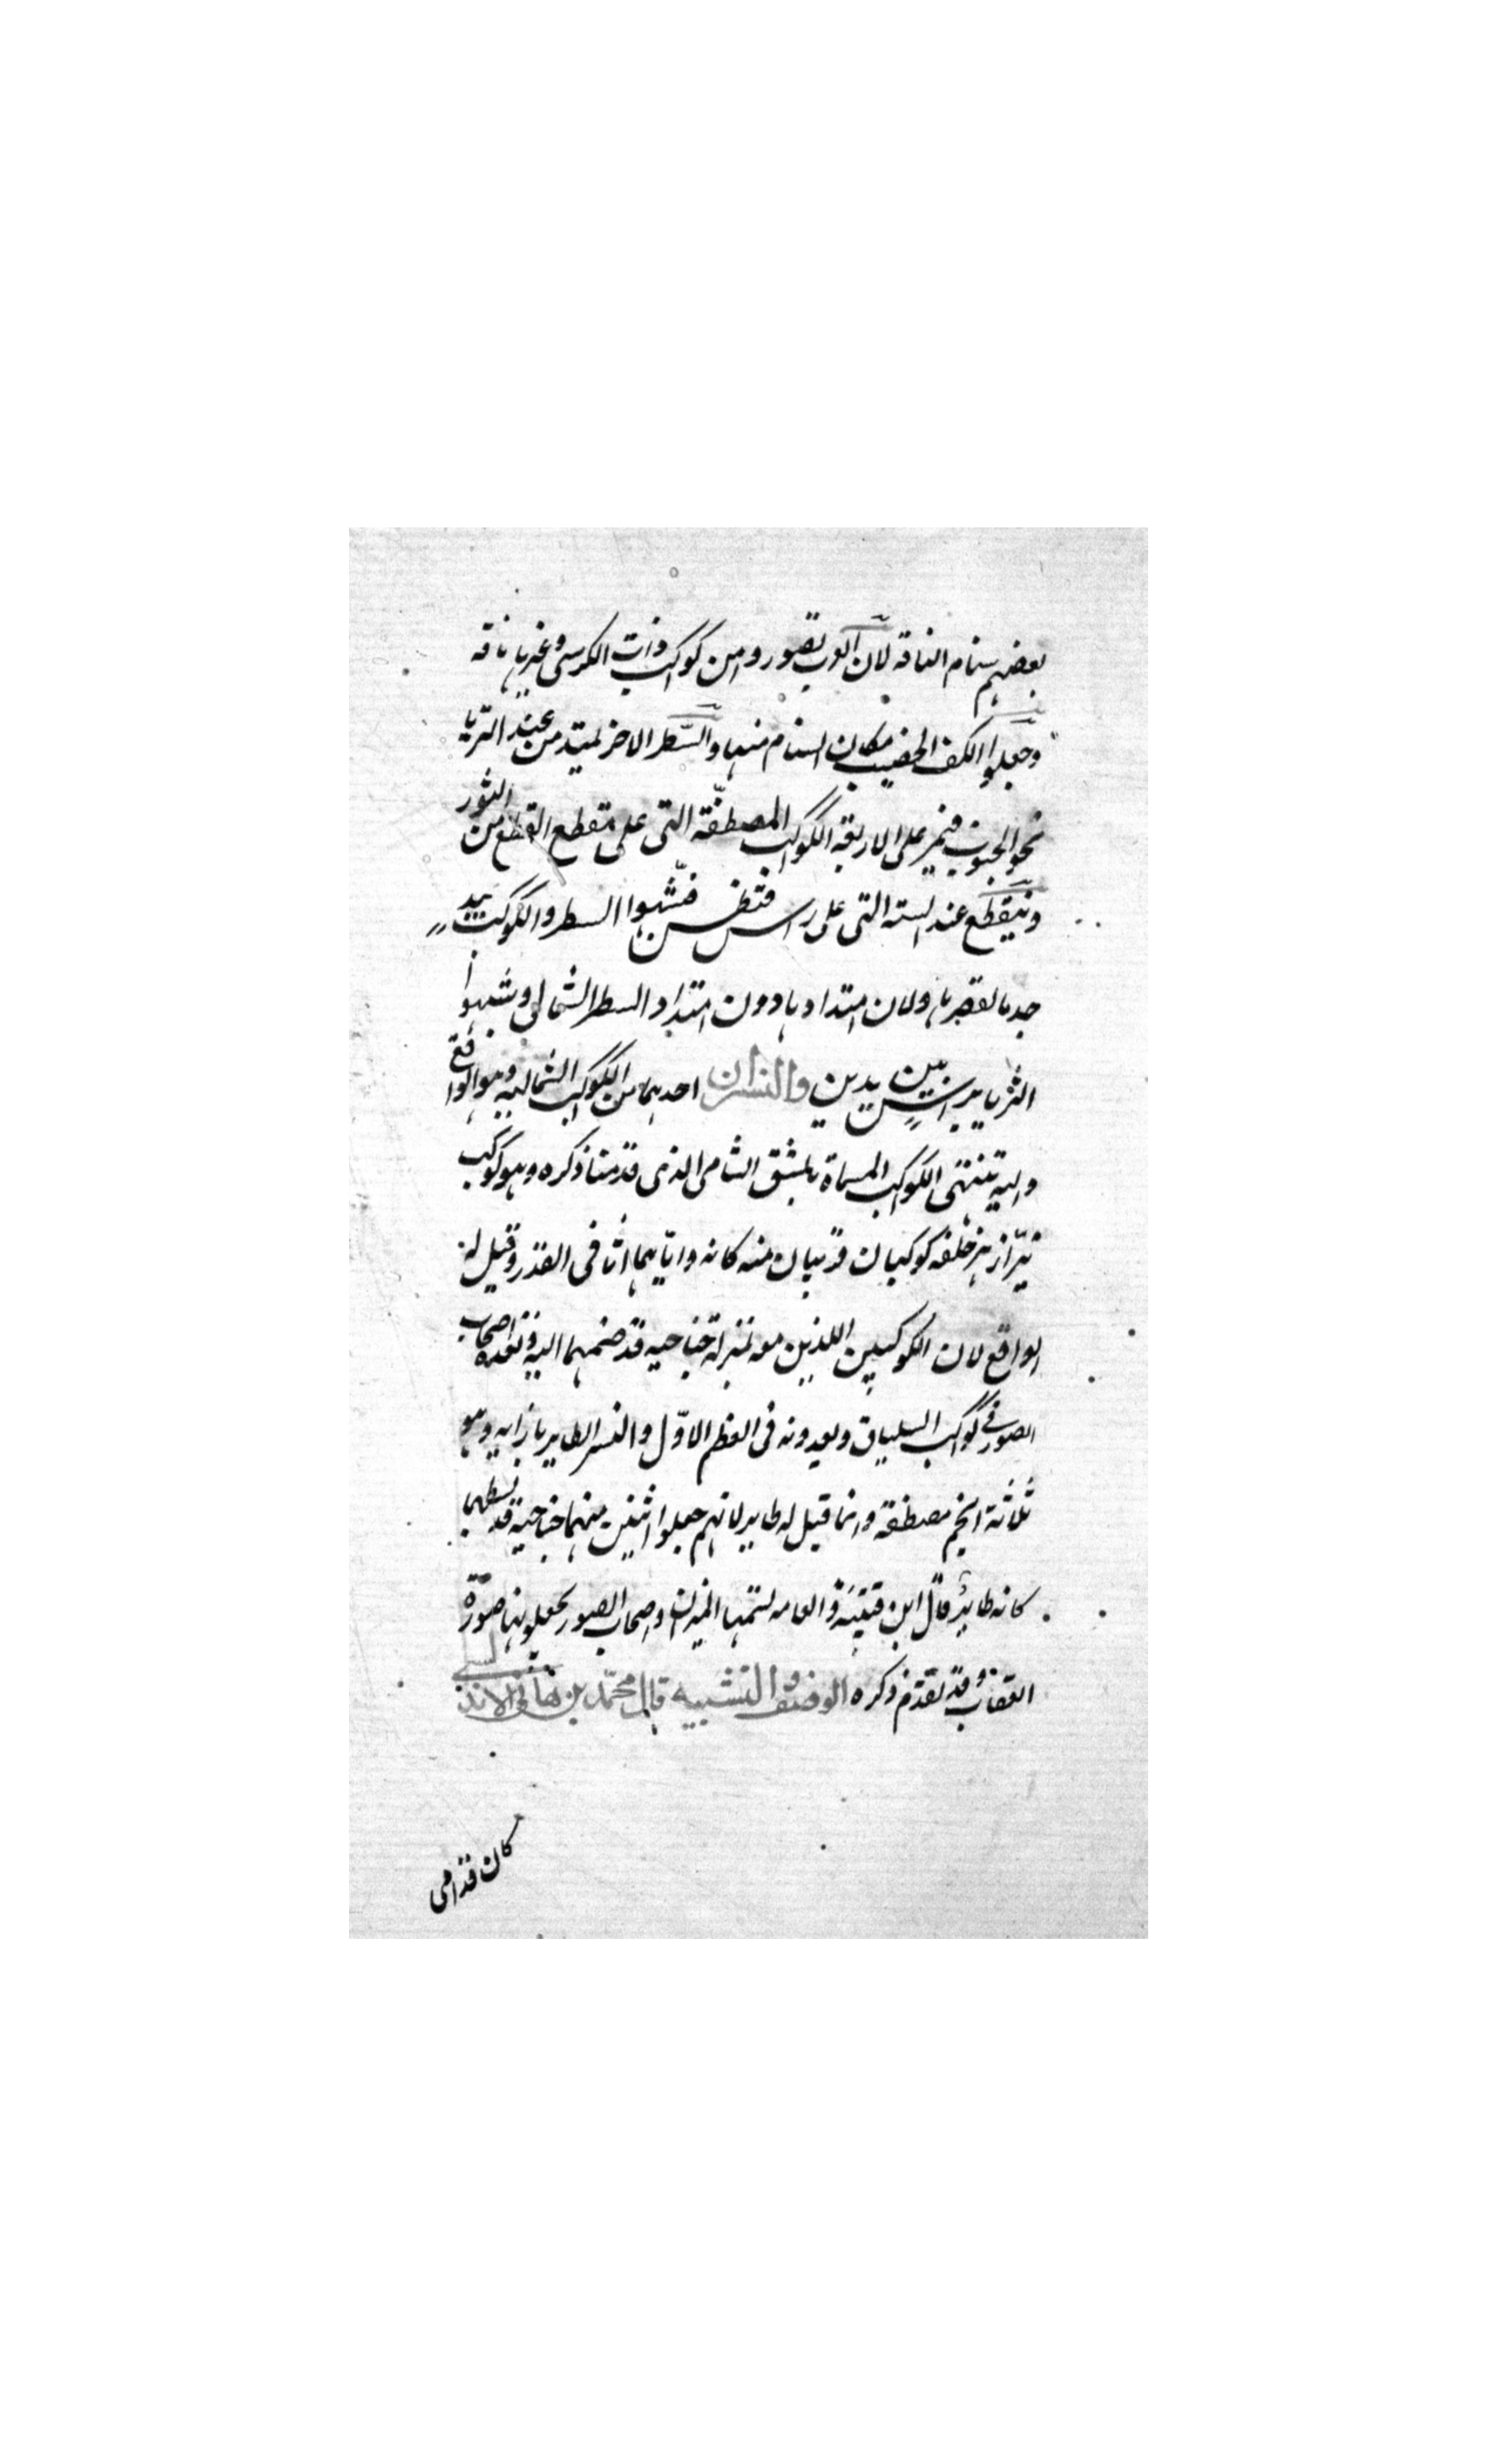 بعضهم سنام الناقة لان العرب تصوروا من كواكب ذات الكرسى وغيرها ناقة
وجعلوا الكف الخضيب مكان السنام منها والسطر الاخر يمتد من عند الثريا
نحو الجنوب فيمر على الاربعة الكواكب المصطفة التى على مقطع القطع من الثور
وينقطع عند الستة التى على راس قنطس فشبهوا السطر والكواكب بيد
جذما لقصرها ولان امتدادها دون امتداد السطر الشمالى وشبهوا
الثريا براس بين يدين والنسران احدهما من الكواكب الشمالية وهو الواقع
واليه تنتهى الكواكب المسماة بالمشق الشامى الذى قدمنا ذكره وهو كوكب
نير ازهر خلفه كوكبان قريبان منه كانه واياهما اثافى القدر وقيل له
الواقع لان الكوكبين اللذين معه بمنزلة جناحيه قد ضمهما اليه وتعده اصحاب
الصور فى كواكب السلياق ويعدونه فى العظم الاول والنسر الطاير بازايه وهو
ثلاثة انجم مصطفة وانما قيل له طاير لانهم جعلوا اثنين منهما جناحيه قد بسطهما
كانه طاير قال ابن قتيبة والعامه تسميها الميزان واصحاب الصور يجعلونها صورة
العقاب وقد تقدم ذكره الوصف والتشبيه قال محمد بن هانى الاندلسى
كان قدامى